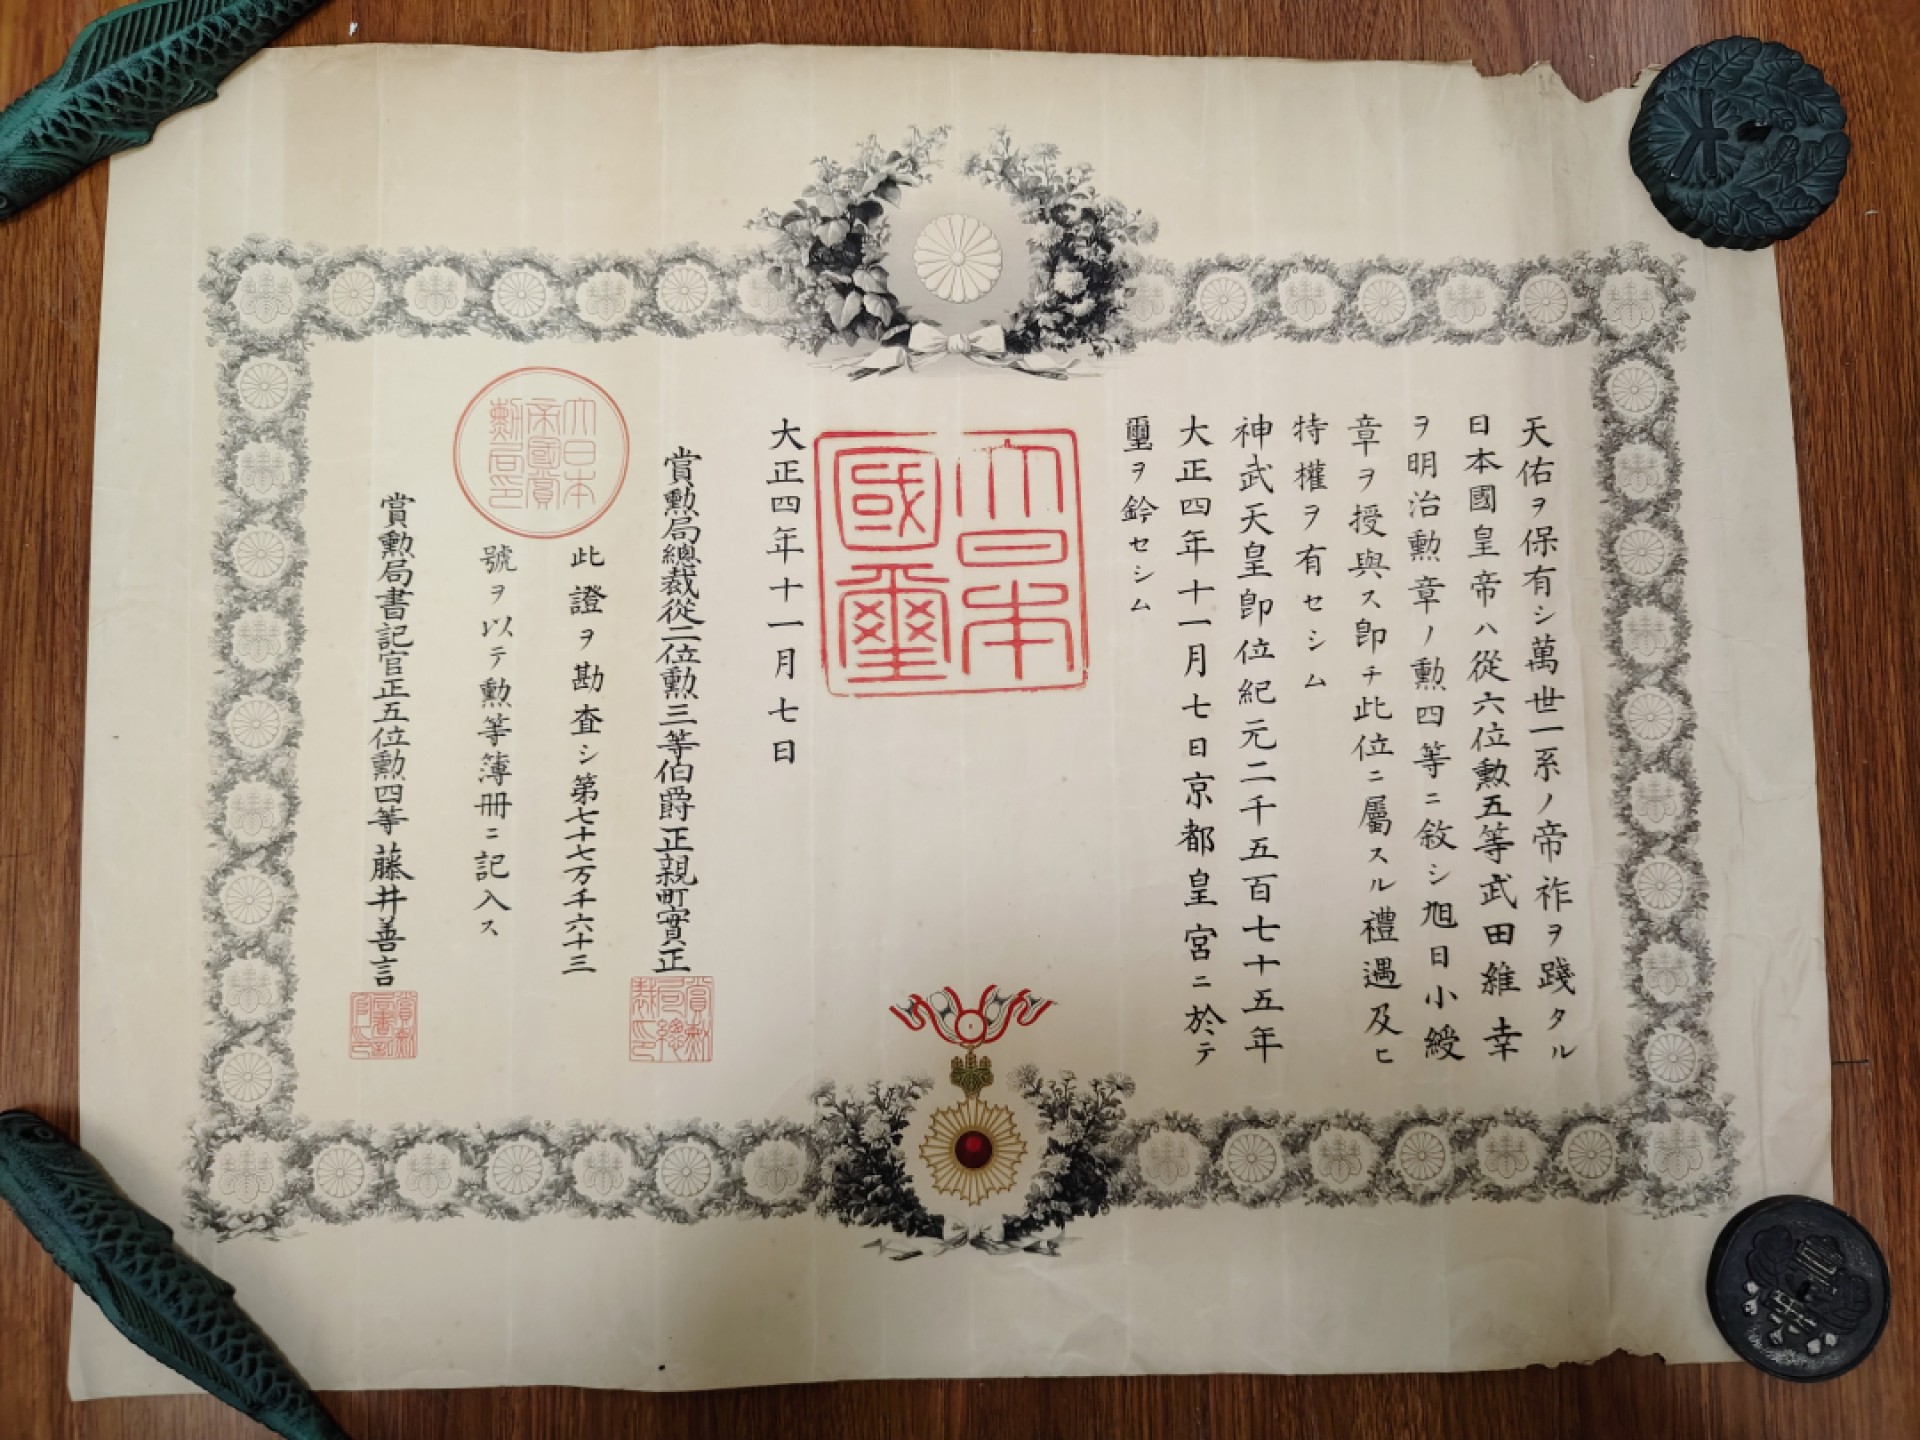 天佑ヲ保有シ萬世一系ノ帝祚ヲ踐タル
日本國皇帝ハ從六位勲五等武田維幸
ヲ明治勲章ノ勲四等ニ敘シ旭日小綬
章ヲ授與ス卽チ此位ニ屬スル禮遇及ヒ
特權ヲ有セシム
神武天皇卽位紀元二千五百七十五年
大正四年十一月七日京都皇宮ニ於テ
璽ヲ鈐セシム
大日本國璽
大正四年十一月七日
賞勲局總裁從二位勲三等伯爵正親町實正
賞勲局總裁印
此證ヲ勘査シ第七十七万千六十三
號ヲ以テ勲等簿冊ニ記入ス
大日本帝國賞勲局印
賞勲局書記官正五位勲四等藤井善言
賞勲局書記官印